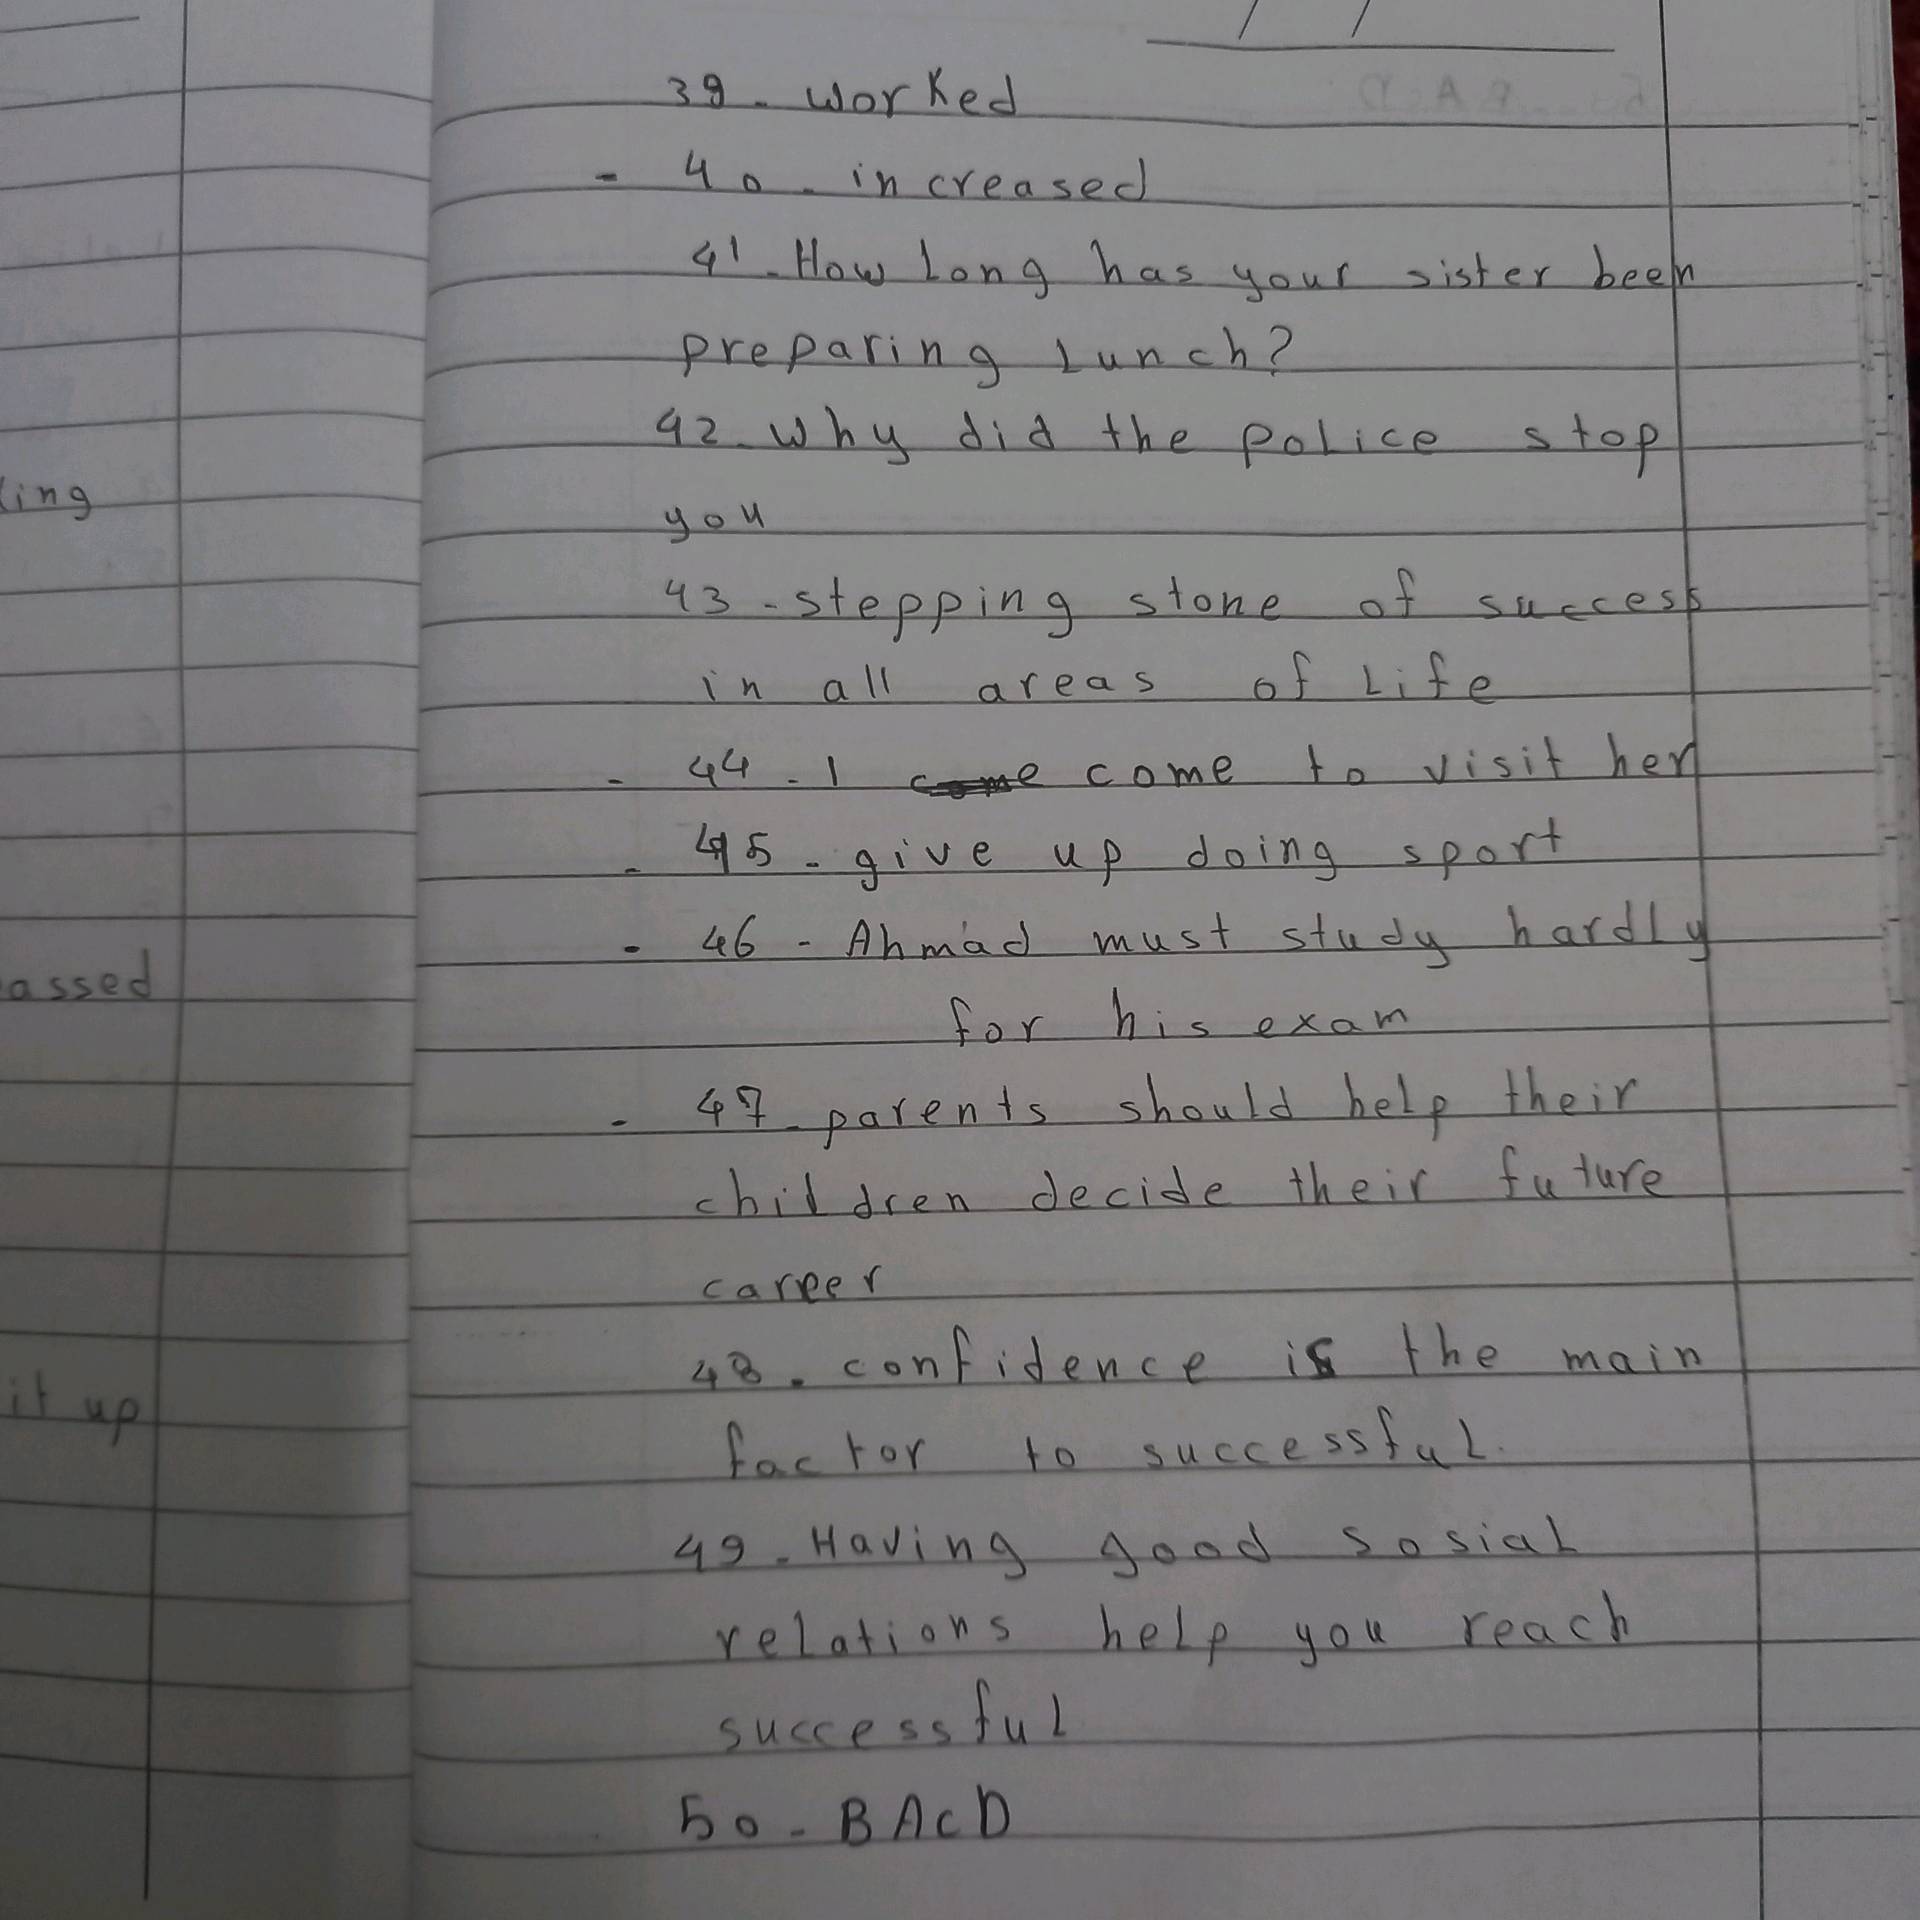 39. worked
- 40. increased
41. How long has your sister been
preparing lunch?
42. why did the police stop
you
43 - stepping stone of success
in all areas of life
- 44 - I come come to visit her
- 45 - give up doing sport
- 46 - Ahmad must study hardly
for his exam
- 47 - parents should help their
children decide their future
career
48. confidence is the main
factor to successful.
49 - Having good sosial
relations help you reach
successful
50 - BACD
ing
assed
it up